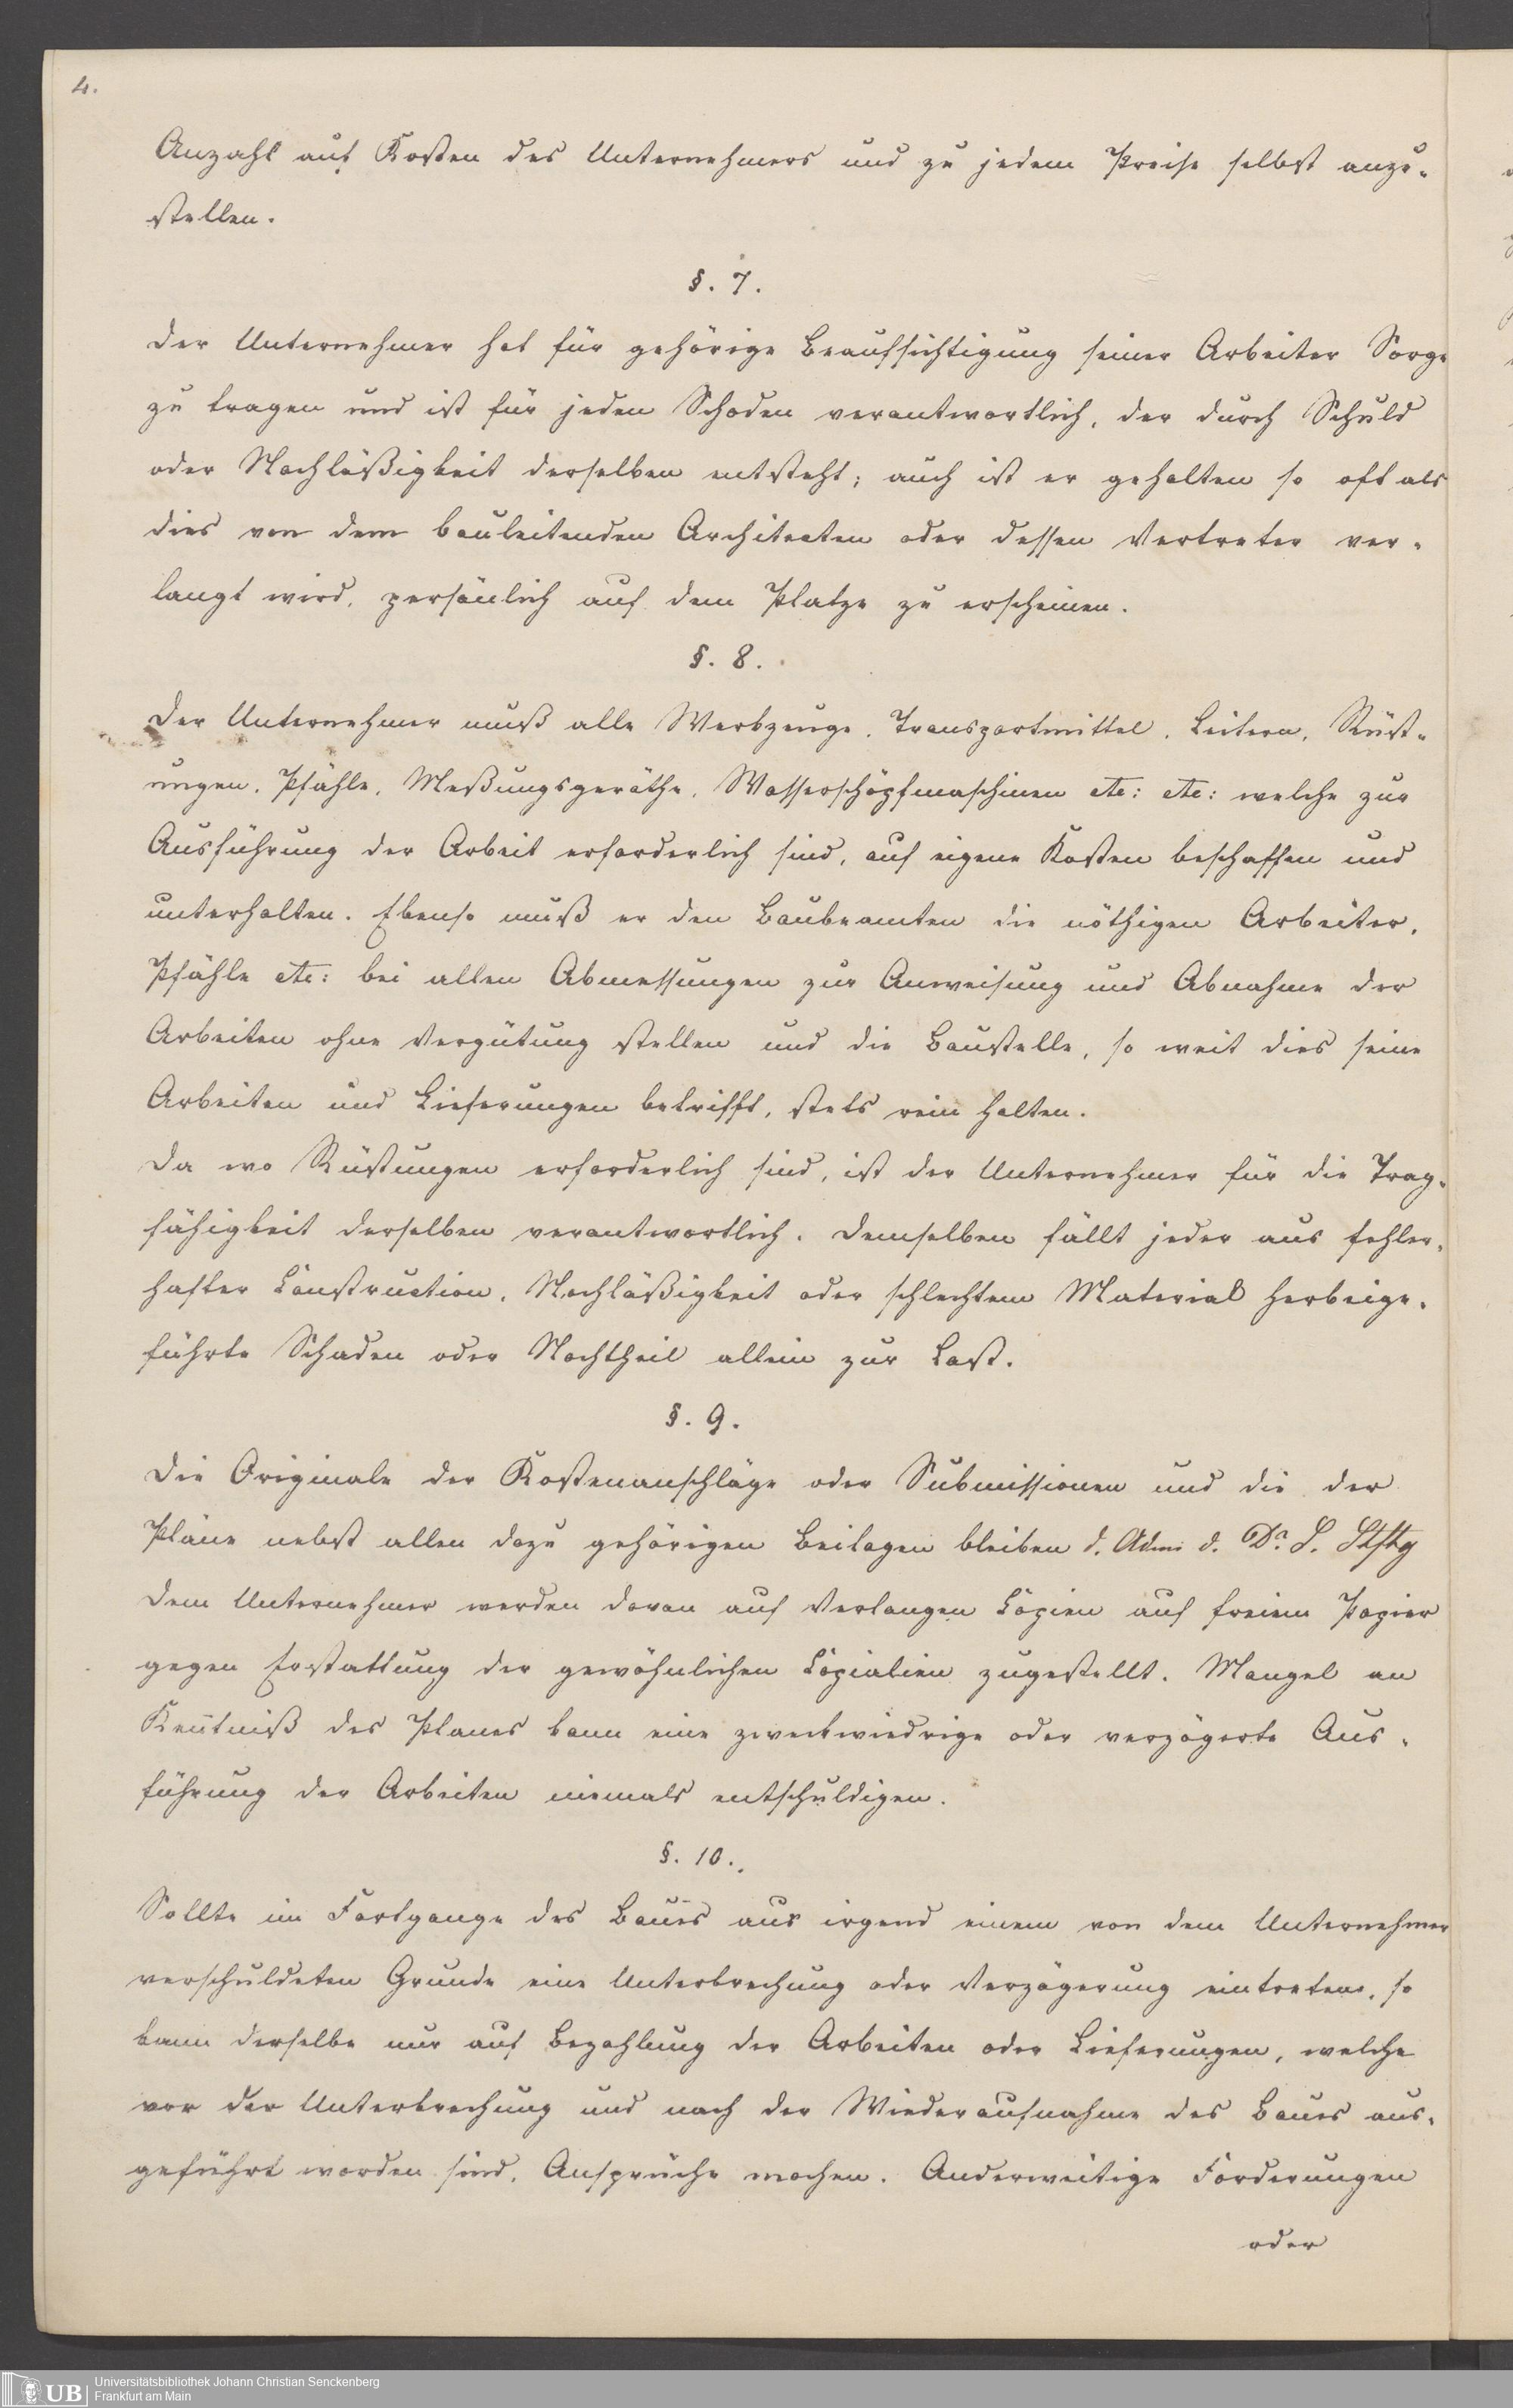 4.
Anzahl auf Kosten des Unternehmers und zu jedem Preise selbst anzu-
stellen.
§. 7.
Der Unternehmer hat für gehörige Beaufsichtigung seiner Arbeiter Sorge
zu tragen und ist für jeden Schaden verantwortlich, der durch Schuld
oder Nachläßigkeit derselben entsteht; auch ist er gehalten so oft als
dies von dem bauleitenden Architecten oder dessen Vertreter ver-
langt wird, persönlich auf dem Platze zu erscheinen.
§. 8.
Der Unternehmer muß alle Werkzeuge, Transportmittel, Leitern, Rüst-
ungen, Pfähle, Meßungsgeräthe, Wasserschöpfmaschinen etc: etc: welche zur
Ausführung der Arbeit erforderlich sind, auf eigene Kosten beschaffen und
unterhalten. Ebenso muß er den Baubeamten die nöthigen Arbeiter,
Pfähle etc: bei allen Abmessungen zur Anweisung und Abnahme der
Arbeiten ohne Vergütung stellen und die Baustelle, so weit dies seine
Arbeiten und Lieferungen betrifft, stets rein halten.
Da wo Rüstungen erforderlich sind, ist der Unternehmer für die Trag-
fähigkeit derselben verantwortlich. Demselben fällt jeder aus fehler-
hafter Construction, Nachläßigkeit oder schlechtem Material herbeige-
führte Schaden oder Nachtheil allein zur Last.
§. 9.
Die Originale der Kostenanschläge oder Submissionen und die der
Pläne nebst allen dazu gehörigen Beilagen bleiben d. Adm. d. Dr. S. Stftg
Dem Unternehmer werden davon auf Verlangen Copien auf freiem Papier
gegen Erstattung der gewöhnlichen Copialien zugestellt. Mangel an
Kentniß des Planes kann eine zweckwiedrige oder verzögerte Aus-
führung der Arbeiten niemals entschuldigen.
§. 10.
Sollte im Fortgange des Baues aus irgend einem von dem Unternehmer
verschuldeten Grunde eine Unterbrechung oder Verzögerung eintreten, so
kann derselbe nur auf Bezahlung der Arbeiten oder Lieferungen, welche
vor der Unterbrechung und nach der Wiederaufnahme des Baues aus-
geführt worden sind, Ansprüche machen. Anderweitige Forderungen
oder
UB Universitätsbibliothek Johann Christian Senckenberg
Frankfurt am Main